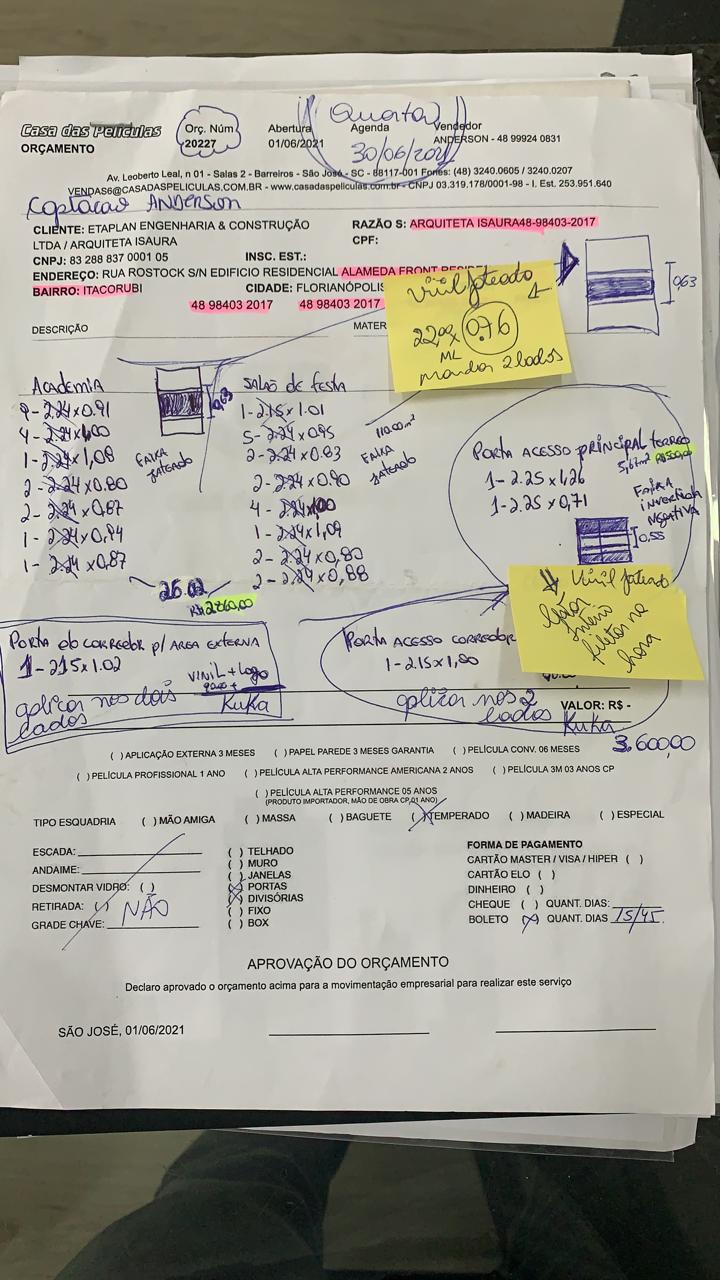 Casa das Películas
ORÇAMENTO
Orç. Núm
20227
Abertura
01/06/2021
Quarta
Agenda
30/06/2021
Vendedor
ANDERSON - 48 99924 0831
Av. Leoberto Leal, n 01 - Salas 2 - Barreiros - São José - SC - 88117-001 Fones: (48) 3240.0605 / 3240.0207
VENDAS6@CASADASPELICULAS.COM.BR - www.casadaspeliculas.com.br - CNPJ 03.319.178/0001-98 - I. Est. 253.951.640
Captacao ANDERSON
CLIENTE: ETAPLAN ENGENHARIA & CONSTRUÇÃO
LTDA / ARQUITETA ISAURA
RAZÃO S: ARQUITETA ISAURA48-98403-2017
CPF:
CNPJ: 83 288 837 0001 05
INSC. EST.:
ENDEREÇO: RUA ROSTOCK S/N EDIFICIO RESIDENCIAL ALAMEDA FRONT
BAIRRO: ITACORUBI
CIDADE: FLORIANÓPOLIS
48 98403 2017
48 98403 2017
0,63
Vinil jateado
22,00 x 0,76
ML
mandar 2 lados
DESCRIÇÃO
MATER
Academia
2.24x0.91
4-2.24x1,00
1-2.24x1,08
2-2.24x0.80
2-2.24x0,87
1-2.24x0,94
1-2.24x0,87
FAIXA
JATEADO
0,63
SALÃO DE FESTA
1-2.15x1.01
5-2.24x0,95
2-2.24x0.83
2-2.24x0.90
4-2.24x1,00
1-2.24x1,09
2-2.24x0,80
2-2.24x0,88
FAIXA
JATEADO
26.02
R$ 2860,00
PORTA ACESSO PRINCIPAL TERREO
1-2.25x1,26
1-2.25x0,71
FAIXA
INVERTIDA
NEGATIVA
0,55
Vinil jateado
filetar na
hora
PORTA do CORREDOR p/ AREA EXTERNA
1-215x1.02
VINIL + Logo
aplicar nos dois
lados
KuKa
PORTA ACESSO CORREDOR
1-2.15x1,00
aplicar nos 2
lados
KuKa
VALOR: R$ -
3.600,00
( ) APLICAÇÃO EXTERNA 3 MESES ( ) PAPEL PAREDE 3 MESES GARANTIA ( ) PELÍCULA CONV. 06 MESES
( ) PELÍCULA PROFISSIONAL 1 ANO ( ) PELÍCULA ALTA PERFORMANCE AMERICANA 2 ANOS ( ) PELÍCULA 3M 03 ANOS CP
( ) PELÍCULA ALTA PERFORMANCE 05 ANOS
(PRODUTO IMPORTADOR, MÃO DE OBRA CP,01 ANO)
TIPO ESQUADRIA ( ) MÃO AMIGA ( ) MASSA ( ) BAGUETE (X) TEMPERADO ( ) MADEIRA ( ) ESPECIAL
ESCADA:
ANDAIME:
DESMONTAR VIDRO: ( )
RETIRADA: ( )
NÃO
GRADE CHAVE:
( ) TELHADO
( ) MURO
( ) JANELAS
(X) PORTAS
(X) DIVISÓRIAS
( ) FIXO
( ) BOX
FORMA DE PAGAMENTO
CARTÃO MASTER / VISA / HIPER ( )
CARTÃO ELO ( )
DINHEIRO ( )
CHEQUE ( ) QUANT. DIAS:
BOLETO (X) QUANT. DIAS 15/45.
APROVAÇÃO DO ORÇAMENTO
Declaro aprovado o orçamento acima para a movimentação empresarial para realizar este serviço
SÃO JOSÉ, 01/06/2021